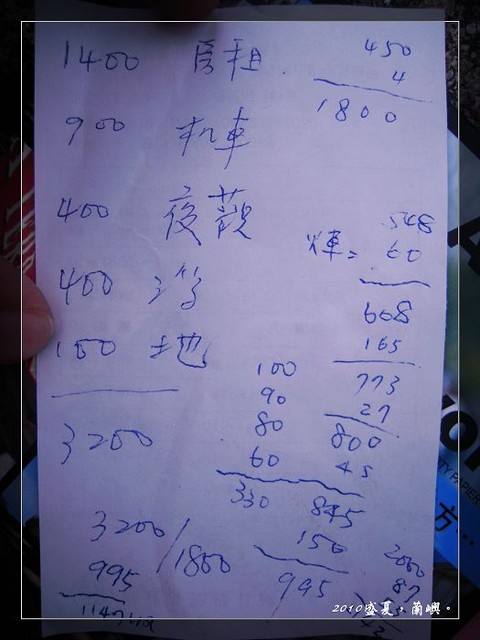 1400 房租
900 机車
400 夜觀
400
100 土也
3200
450
4
1800
548
60
608
165
773
27
800
45
845
150
995
100
90
80
60
330
3200
995
1800
2000
87
2010盛夏，蘭嶼。